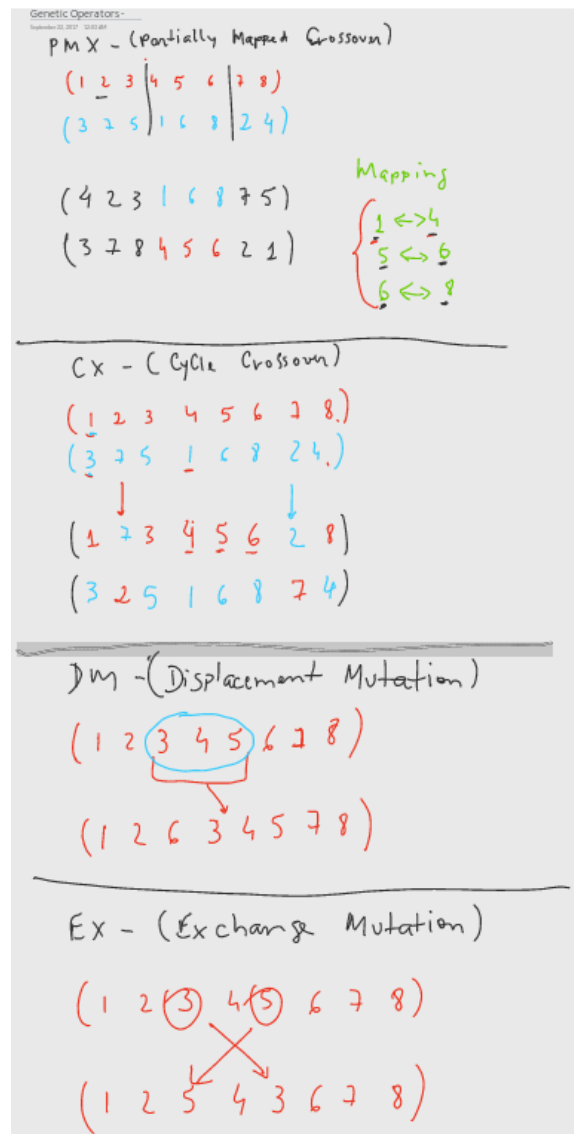 Genetic Operators-
September 22, 2017 12:02 AM
PMX - (Partially Mapped Crossover)
(1 2 3 | 4 5 6 | 7 8)
(3 7 5 | 1 6 8 | 2 4)
Mapping
(4 2 3 1 6 8 7 5)
1 <-> 4
(3 7 8 4 5 6 2 1)
5 <-> 6
6 <-> 8
CX - (Cycle Crossover)
(1 2 3 4 5 6 7 8)
(3 7 5 1 6 8 2 4)
(1 7 3 4 5 6 2 8)
(3 2 5 1 6 8 7 4)
DM - (Displacement Mutation)
(1 2 3 4 5 6 7 8)
(1 2 6 3 4 5 7 8)
EX - (Exchange Mutation)
(1 2 3 4 5 6 7 8)
(1 2 5 4 3 6 7 8)